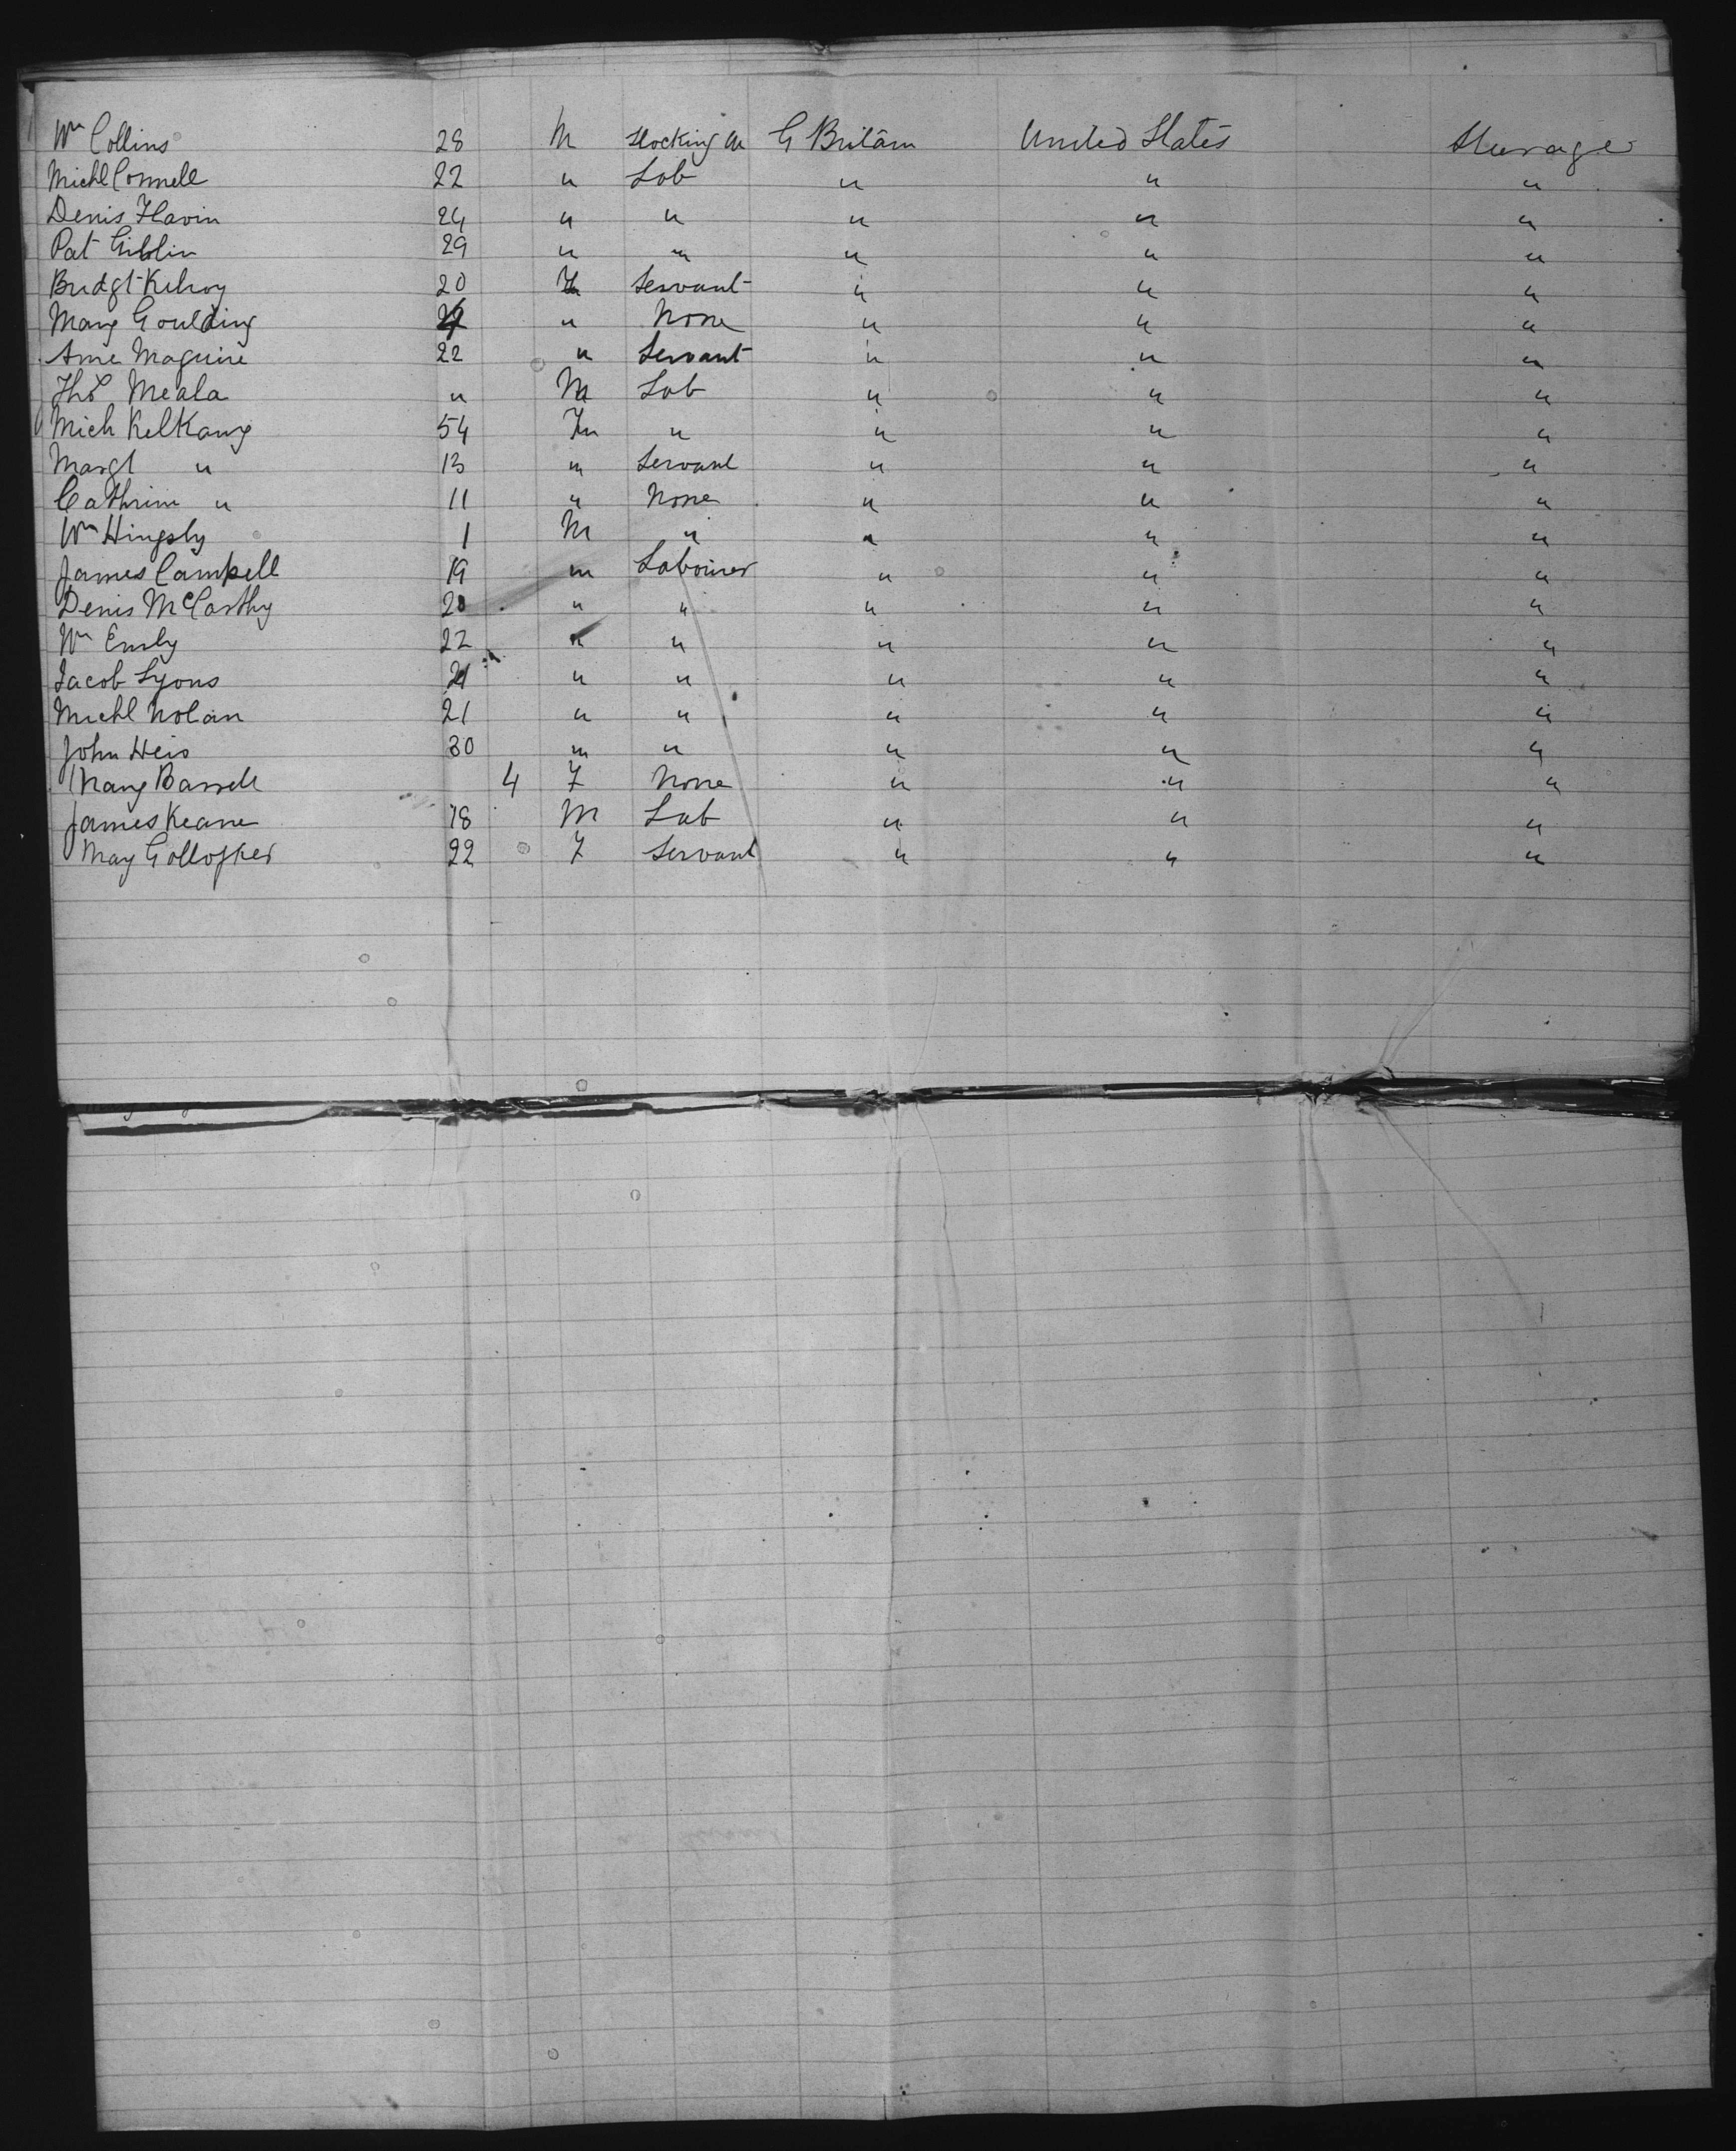 Wm Collins 28 M Stocking M G Britain United States Steerage
Michl Connell 22 " Lab " " "
Denis Flavin 24 " " " " "
Pat Giblin 29 " " " " "
Bridgt Kilroy 20 F Servant " " "
Mary Goulding " None " " "
Ann Maguire 22 " Servant " " "
Thos Meala " M Lab " " "
Mich Kelkany 54 " " " "
Margt " 13 " Servant " " "
Cathrine " 11 " None " " "
Wm Hingsly 1 M " " " "
James Campell 19 " Labourer " " "
Denis McCarthy 20 " " " " "
Wm Emly 22 " " " " "
Jacob Lyons 21 " " " " "
Michl Nolan 21 " " " " "
John Heis 30 " " " " "
Mary Barrell 4 F None " " "
James Keane 18 M Lab " " "
May Gollogher 22 F Servant " " "